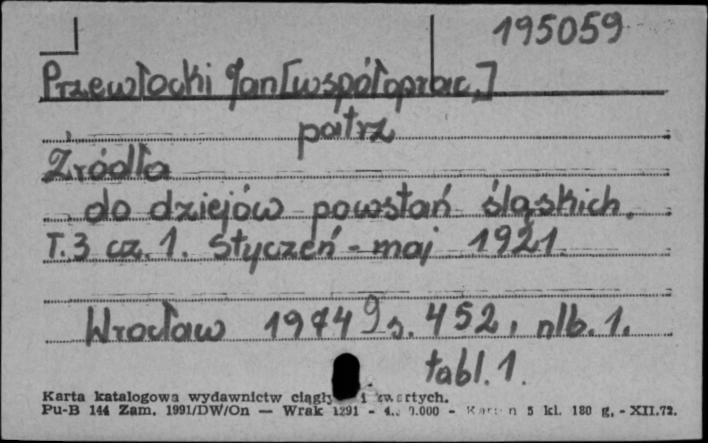 195059
Przewłocki Jan [współoprac.]
patrz
Źródła
do dziejów powstań śląskich.
T.3 cz.1. Styczeń - maj 1921.
Wrocław 1974 s. 452, nlb. 1.
tabl. 1.
Karta katalogowa wydawnictw i zwartych.
Pu-B 144 Zam. 1991/DW/On — Wrak 1291 - 5 kl. 180 g. - XII.72.